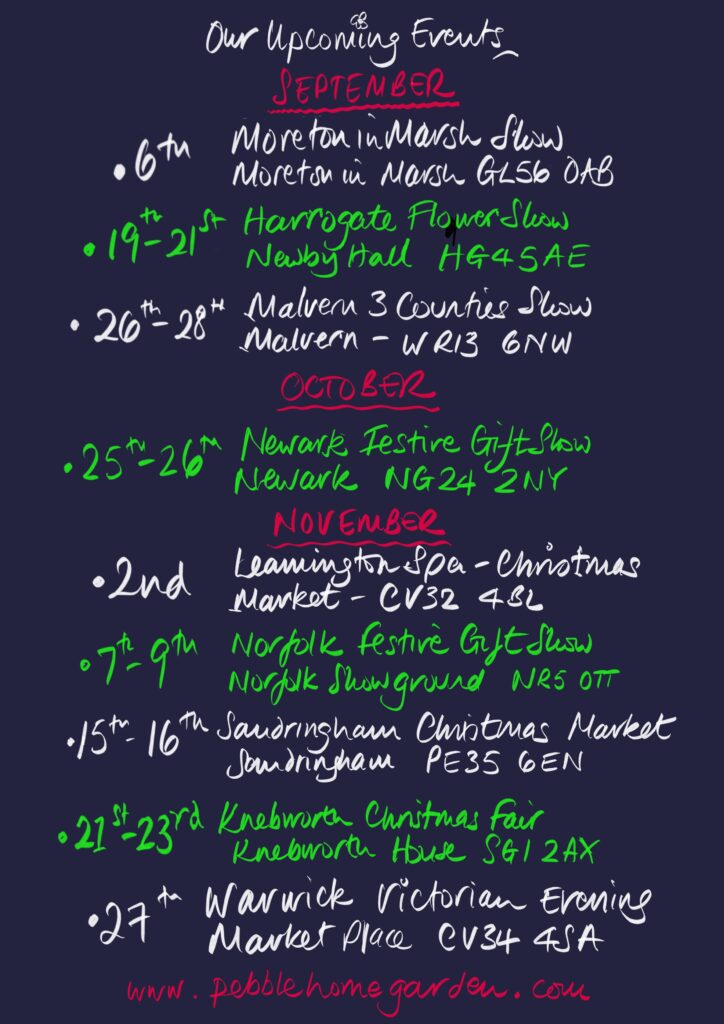 Our Upcoming Events
SEPTEMBER
• 6th Moreton in Marsh Show
Moreton in Marsh GL56 0AB
• 19th - 21st Harrogate Flower Show
Newby Hall HG4 5AE
• 26th - 28th Malvern 3 Counties Show
Malvern - WR13 6NW
OCTOBER
• 25th - 26th Newark Festive Gift Show
Newark NG24 2NY
NOVEMBER
• 2nd Leamington Spa - Christmas
Market - CV32 4BL
• 7th - 9th Norfolk Festive Gift Show
Norfolk Showground NR5 0TT
• 15th - 16th Sandringham Christmas Market
Sandringham PE35 6EN
• 21st - 23rd Knebworth Christmas Fair
Knebworth House SG1 2AX
• 27th Warwick Victorian Evening
Market Place CV34 4SA
www.pebblehomegarden.com